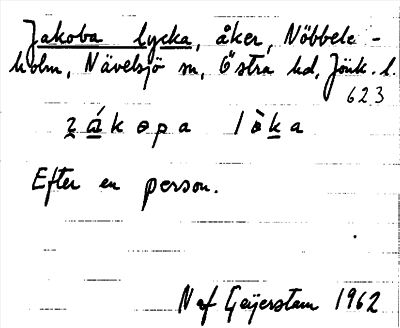 Jakoba lycka, åker, Nöbbele-
holm, Nävelsjö sn, Östra hd, Jönk. l.
623
Efter en person.
N af Geijerstam 1962